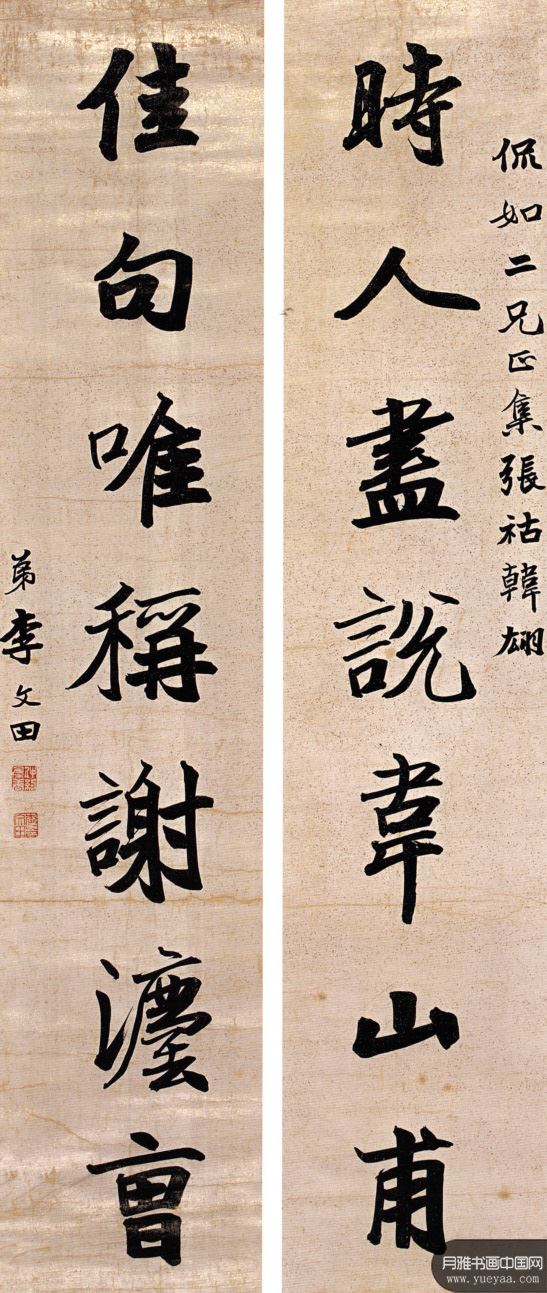 侃如二兄正集張祜韓翃
時人盡說韋山甫
佳句唯稱謝灋曺
弟李文田
月雅书画中国网
www.yueyaa.com